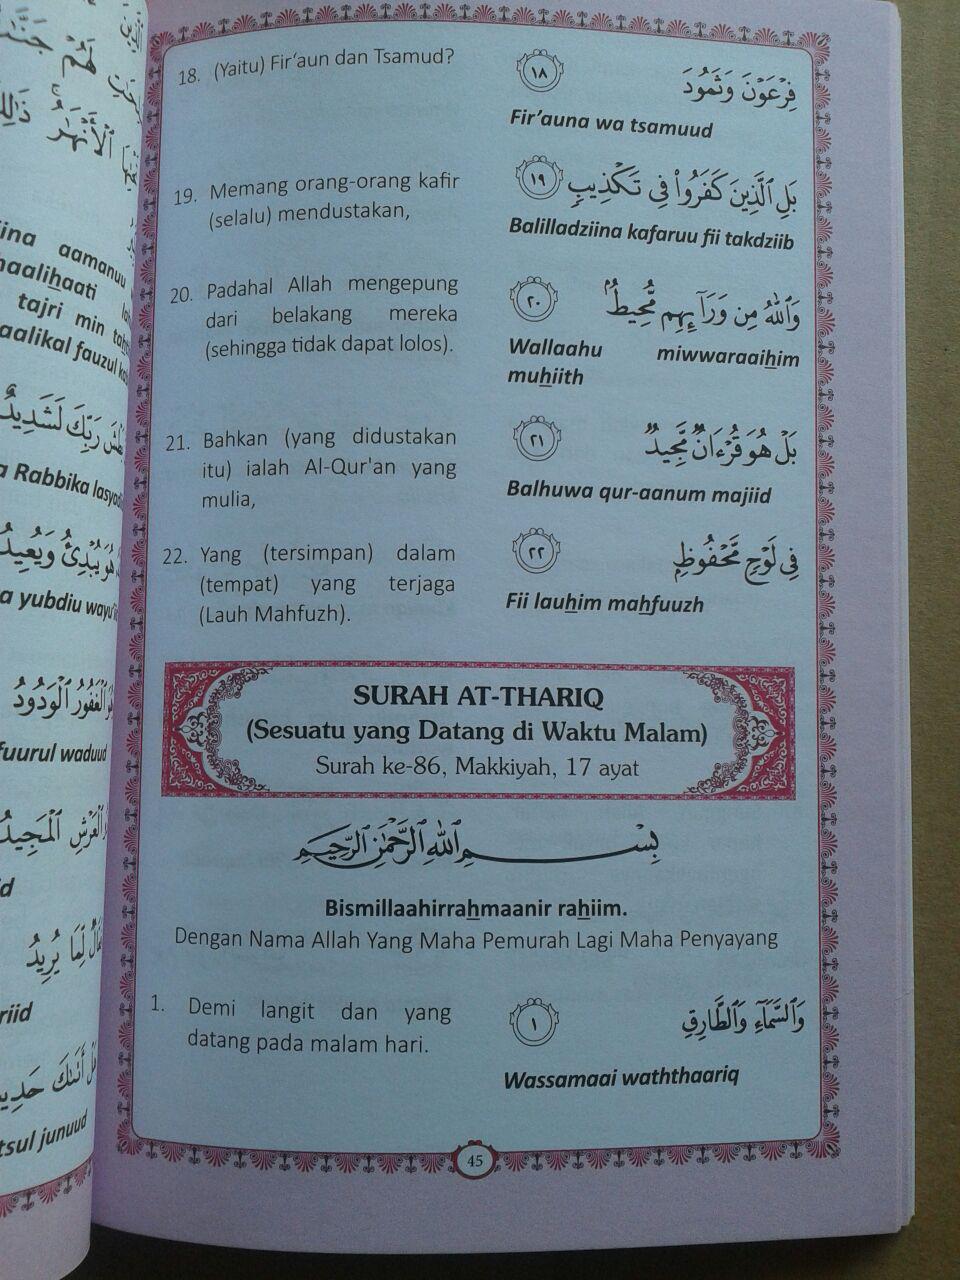 الَّذِينَ
لَهُمْ جَنَّـٰتٌ
ٱلْأَنْهَـٰرُ ۚ ذَٰلِكَ
aamanuu
tajri min
aalikal fauzul
رَبِّكَ لَشَدِيدٌ
a Rabbika
هُوَ يُبْدِئُ وَيُعِيدُ
a yubdiu
ٱلْغَفُورُ ٱلْوَدُودُ
fuurul waduud
ٱلْعَرْشِ ٱلْمَجِيدُ
id
لِّمَا يُرِيدُ
riid
أَتَىٰكَ
tsul junuud
18. (Yaitu) Fir‘aun dan Tsamud?
فِرْعَوْنَ وَثَمُودَ ١٨
Fir’auna wa tsamuud
19. Memang orang-orang kafir
(selalu) mendustakan,
بَلِ ٱلَّذِينَ كَفَرُوا۟ فِى تَكْذِيبٍ ١٩
Balilladziina kafaruu fii takdziib
20. Padahal Allah mengepung
dari belakang mereka
(sehingga tidak dapat lolos).
وَٱللَّهُ مِن وَرَآئِهِم مُّحِيطٌۢ ٢٠
Wallaahu miwwaraaihim
muhiith
21. Bahkan (yang didustakan
itu) ialah Al-Qur'an yang
mulia,
بَلْ هُوَ قُرْءَانٌ مَّجِيدٌ ٢١
Balhuwa qur-aanum majiid
22. Yang (tersimpan) dalam
(tempat) yang terjaga
(Lauh Mahfuzh).
فِى لَوْحٍ مَّحْفُوظٍۭ ٢٢
Fii lauhim mahfuuzh
SURAH AT-THARIQ
(Sesuatu yang Datang di Waktu Malam)
Surah ke-86, Makkiyah, 17 ayat
بِسْمِ ٱللَّهِ ٱلرَّحْمَـٰنِ ٱلرَّحِيمِ
Bismillaahirrahmaanir rahiim.
Dengan Nama Allah Yang Maha Pemurah Lagi Maha Penyayang
1. Demi langit dan yang
datang pada malam hari.
وَٱلسَّمَآءِ وَٱلطَّارِقِ ١
Wassamaai waththaariq
45